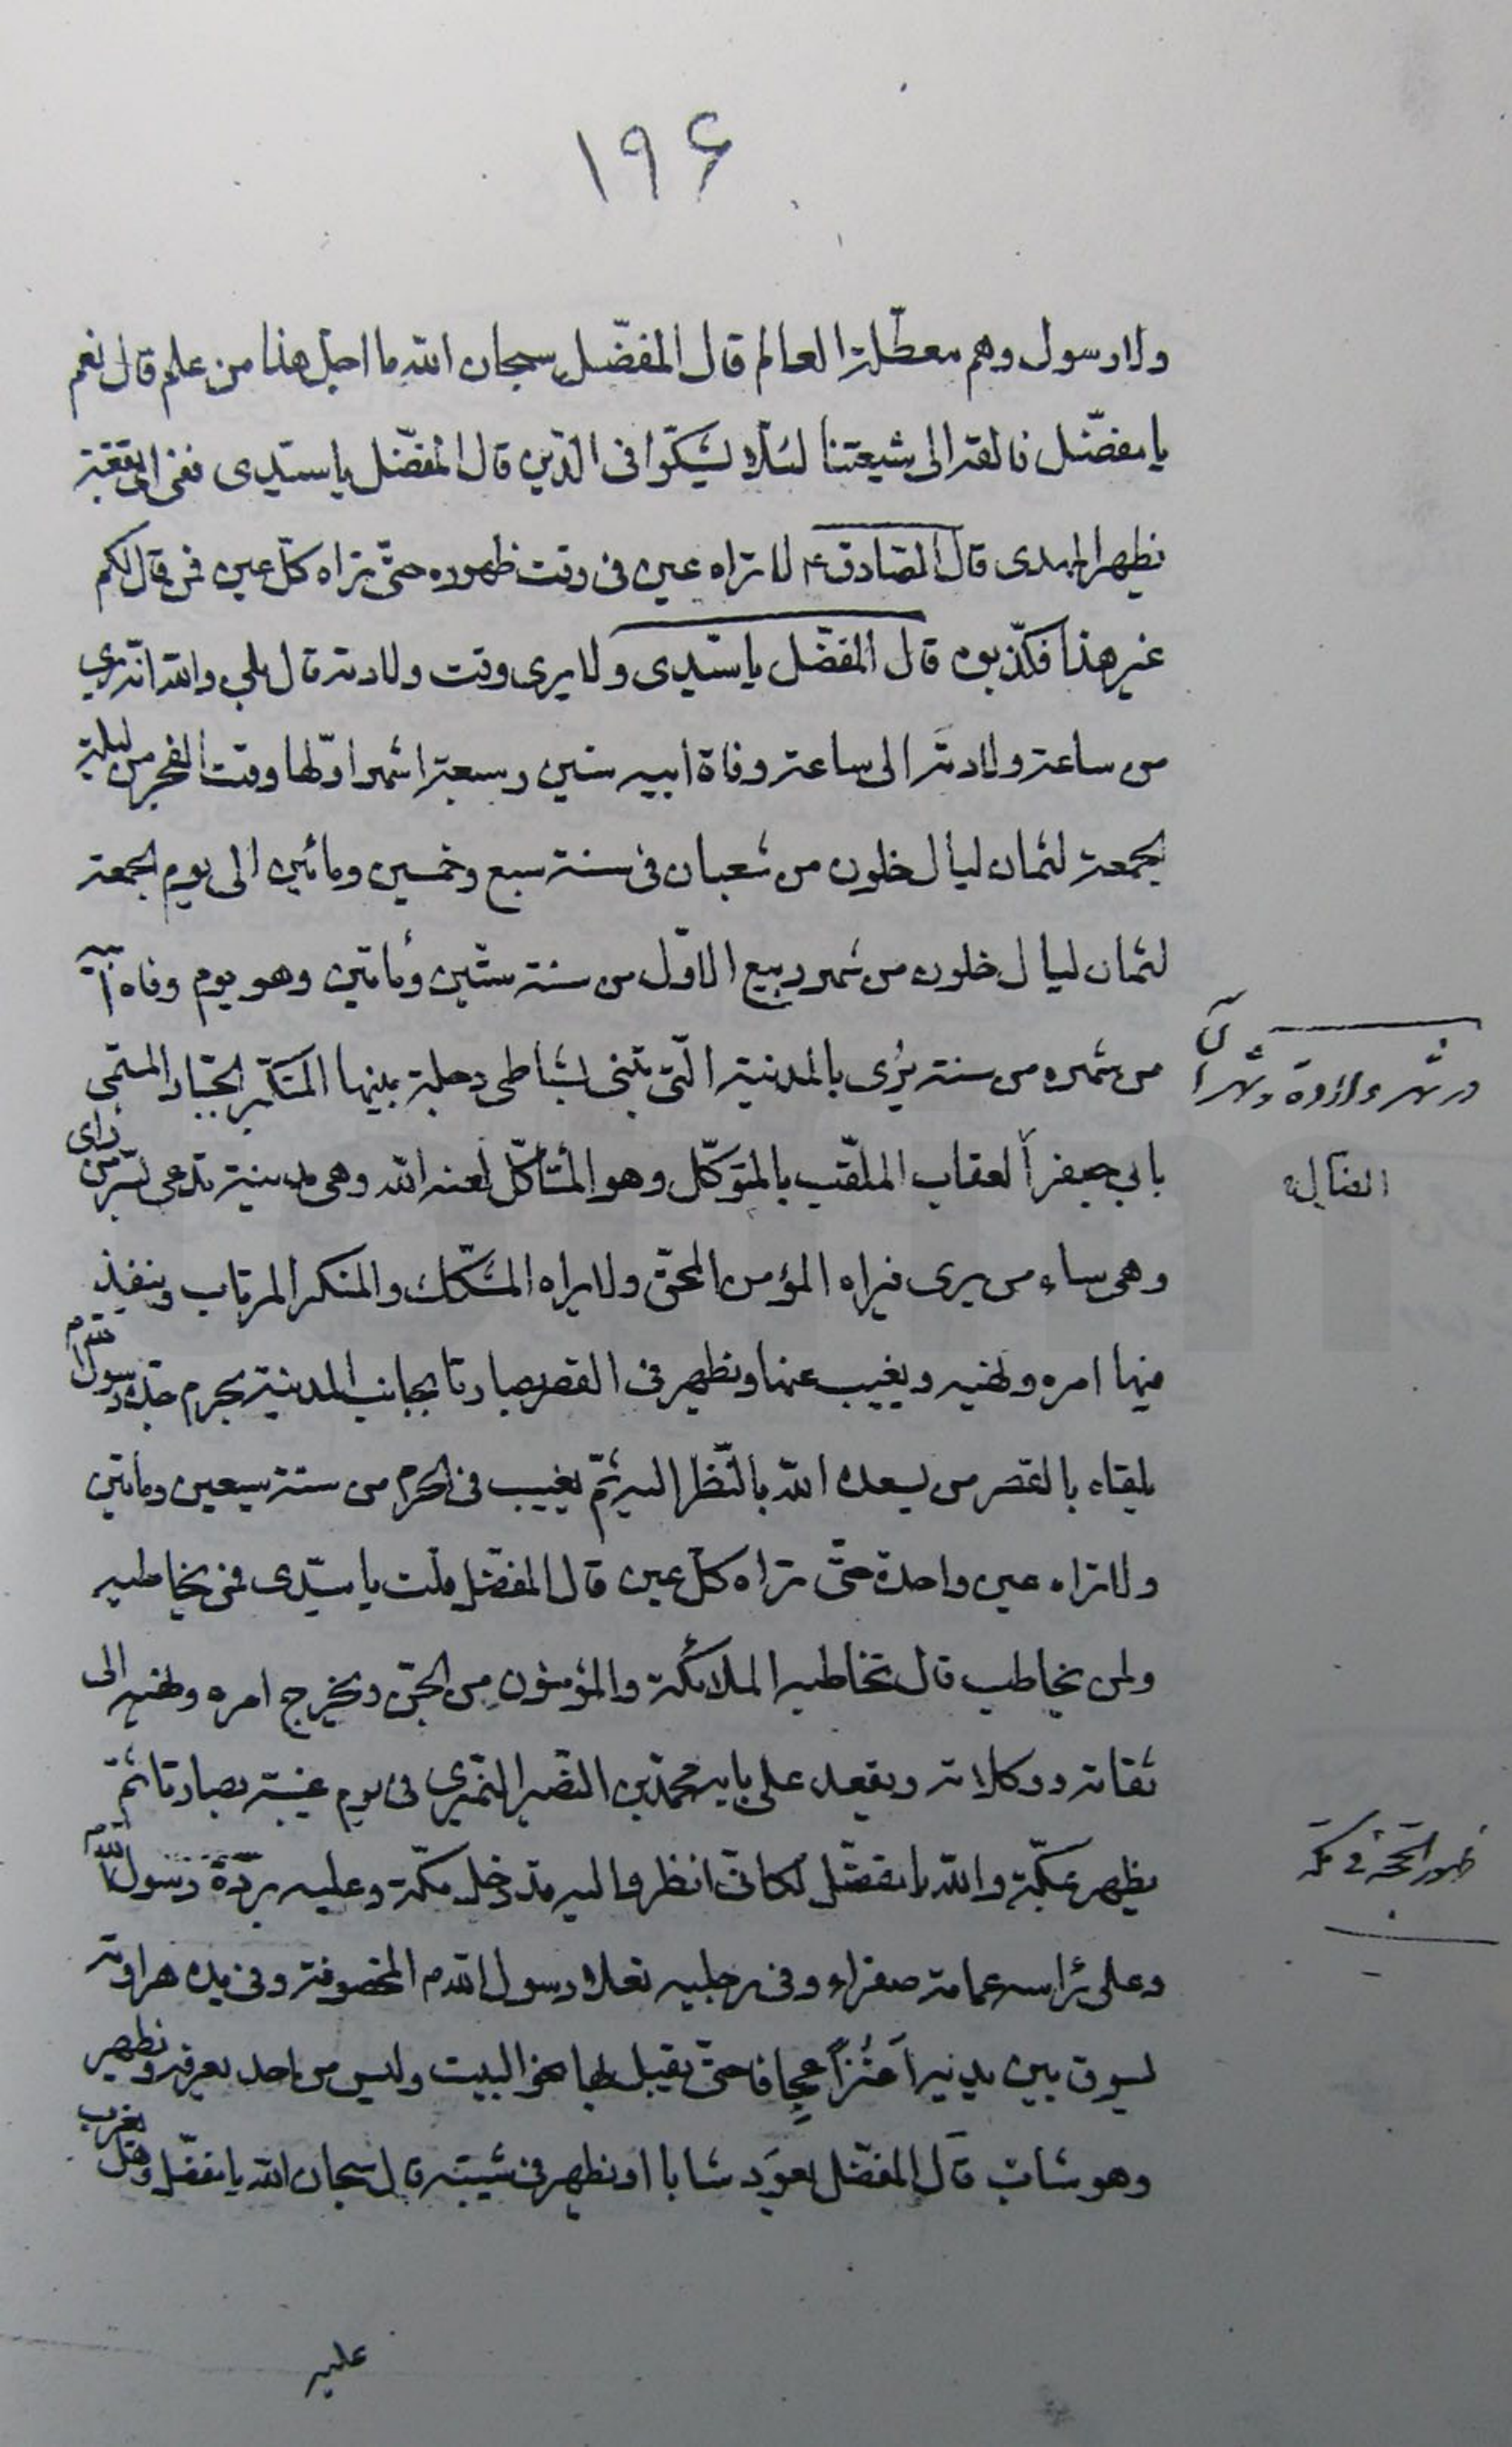 ۱۹۶
ولا رسول وهم معطّلة العالم قال المفضّل سبحان الله ما اجلّ هذا من علم قال نعم
يا مفضّل فالقه الى شيعتنا لئلّا يشكّوا فى الدّين قال المفضّل يا سيّدى ففى اىّ بقعة
يظهر المهدى قال الصّادق ع لا تراه عين فى وقت ظهوره حتّى تراه كلّ عين فمن قال لكم
غير هذا فكذّبوه قال المفضّل يا سيّدى ولا يرى وقت ولادته قال بلى والله انّه يرى
من ساعة ولادته الى ساعة وفاة ابيه سنين وسبعة اشهر اوّلها وقت الفجر من ليلة
الجمعة لثمان ليال خلون من شعبان فى سنة سبع وخمسين ومائين الى يوم الجمعة
لثمان ليال خلون من شهر ربيع الاوّل من سنة ستّين ومأتين وهو يوم وفاة ابيه
من شهره من سنة يُرى بالمدينة الّتى تبنى بشاطى دجلة يبنيها المتكبّر الجبّار المسمّى
بابي جعفر العقاب الملقّب بالمتوكّل وهو المتأكّل لعنه الله وهى مدينة تدعى بسرّ من راى
وهى ساء من يرى فيراه المؤمن المحقّ ولا يراه المشكّك والمنكر المرتاب وينفذ
فيها امره ونهيه ويغيب عنها ويظهر فى القصر بصاريا بجانب المدينة بحرم جدّه رسول الله م
يلقاه بالقصر من يسعده الله بالنّظر اليه ثمّ يغيب فى الحرم من سنة سبعين ومأتين
ولا تراه عين واحدة حتّى تراه كلّ عين قال المفضّل قلت يا سيّدى فمن يخاطبه
ولمن يخاطب قال تخاطبه الملائكة والمؤمنون من الجنّ ويخرج امره ونهيه الى
ثقاته ووكلاته ويقعد على بابه محمّد بن النّصير النّميرى فى يوم غيبته بصاريا ثمّ
يظهر بمكّة والله يا مفضّل لكانّى انظر اليه قد دخل مكّة وعليه بردة رسول الله م
وعلى رأسه عمامة صفراء وفى رجليه نعلا رسول الله م المخصوفة وفى يده هراوته
يسوق بين يديه اعنُزاً عجافا حتّى يقبل بها نحو البيت وليس من احد يعرفه ويظهر
وهو شابّ قال المفضّل يعود شابا او يظهر فى شيبته قال سبحان الله يا مفضّل وهل يعرب
عليه
ظهور الحجّة فى مكّة